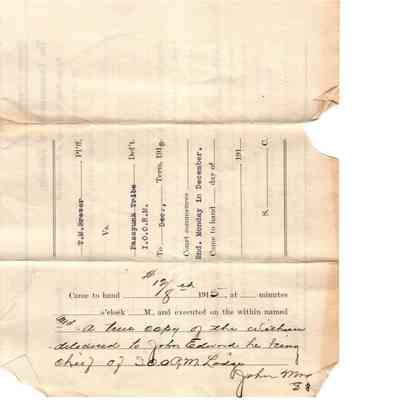 T.M. Brewer Pl'ff.
Vs.
Passyunk Tribe Def't.
I.O.O.R.M.
To Dec., Term, 191
Court commences
2nd. Monday in December.
Came to hand day of
191
S. C.
12/8 1915, at minutes
Came to hand
o'clock M., and executed on the within named
A true copy of the within
delivered to John Edward he being
chief of I.O.O.R.M. Lodge
John